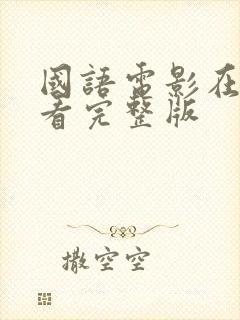 國語電影在
看完整版
撒空空